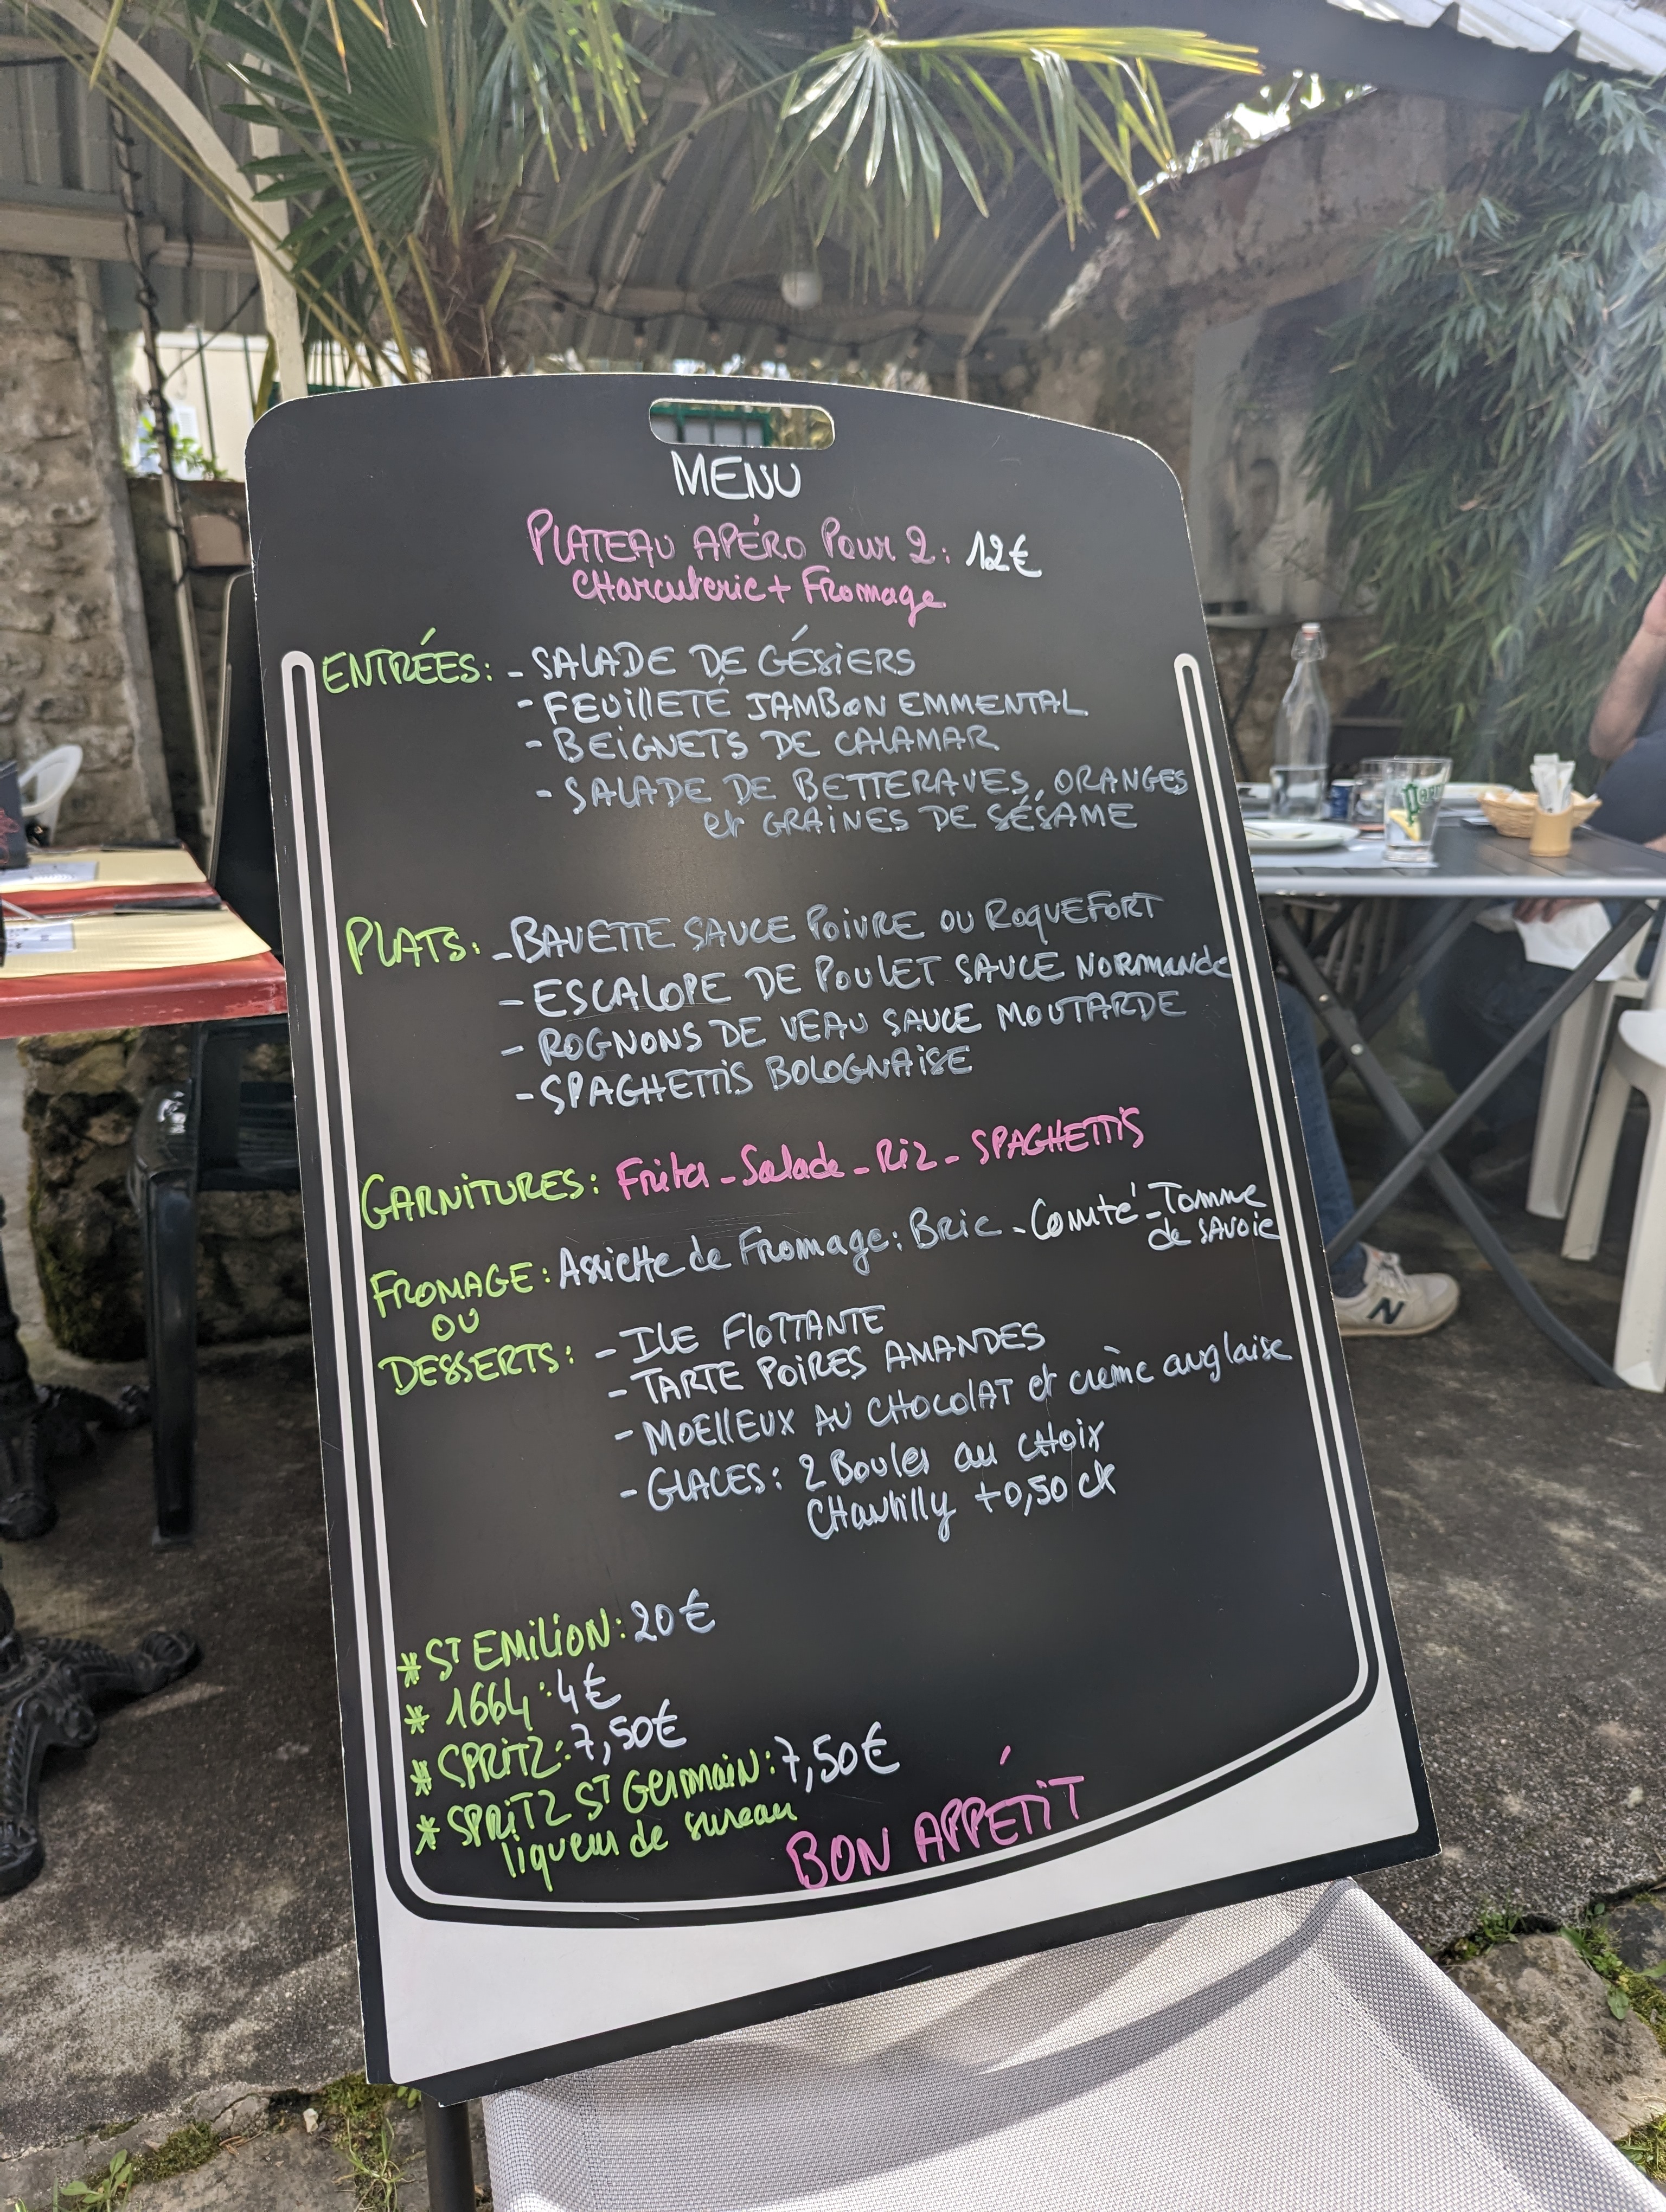 MENU
PLATEAU APÉRO POUR 2: 12€
CHARCUTERIE + FROMAGE
ENTRÉES: - SALADE DE GÉSIERS
- FEUILLETÉ JAMBON EMMENTAL
- BEIGNETS DE CALAMAR
- SALADE DE BETTERAVES, ORANGES
et GRAINES DE SÉSAME
PLATS: - BAVETTE SAUCE POIVRE OU ROQUEFORT
- ESCALOPE DE POULET SAUCE NORMANDE
- ROGNONS DE VEAU SAUCE MOUTARDE
- SPAGHETTIS BOLOGNAISE
GARNITURES: Frites - Salade - Riz - SPAGHETTIS
FROMAGE: Assiette de Fromage: Brie - Comté - Tomme
de SAVOIE
OU
DESSERTS: - ILE FLOTTANTE
- TARTE POIRES AMANDES
- MOELLEUX AU CHOCOLAT et crème anglaise
- GLACES: 2 Boules au CHOIX
CHantilly +0,50 ck
* ST EMILION: 20€
* 1664: 4€
* SPRITZ: 7,50€
* SPRITZ ST GERMAIN: 7,50€
liqueur de sureau
BON APPÉTIT
N